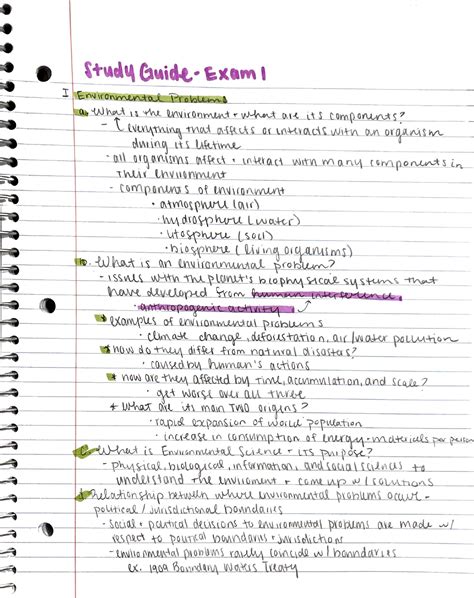 Study Guide - Exam 1
I Environmental Problems
a. What is the environment + what are its components?
- ↑ Everything that affects or interacts with an organism
during its lifetime
- all organisms affect + interact with many components in
their environment
- components of environment
• atmosphere (air)
• hydrosphere (water)
• litosphere (soil)
• biosphere (living organisms)
b. What is an environmental problem?
- issues with the planet's biophysical systems that
have developed from human interference
• anthropogenic activity
* examples of environmental problems
• climate change, deforestation, air/water pollution
* how do they differ from natural disasters?
• caused by human's actions
* how are they affected by time, accumulation, and scale?
• get worse over all three
* What are its main TWO origins?
• rapid expansion of world population
• increase in consumption of energy + materials per person
c. What is Environmental Science + its purpose?
- physical, biological, information, and social sciences to
understand the enviroment + come up w/ solutions
d. Relationship between where environmental problems occur -
political / jurisdictional boundaries
- social + political decisions to environmental problems are made w/
respect to political boundaries + jurisdictions
- environmental problems rarely coincide w/ boundaries
ex. 1909 Boundary Waters Treaty